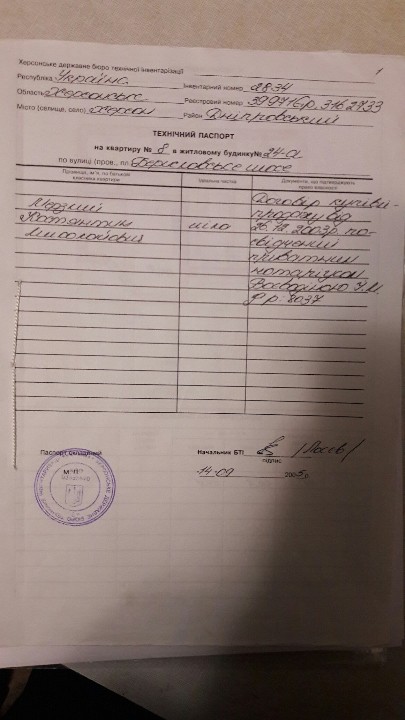 Херсонське державне бюро технічної інвентарізації
1
Республіка Україна Інвентарний номер 2834
Область Херсонська Реєстровий номер
Місто (селище, село) Херсон Район Дніпровський
ТЕХНІЧНИЙ ПАСПОРТ
на квартиру № 8 в житловому будинку № 24-а
по вулиці (пров., пл. Бериславське шосе
Прізвище, м'я, по батькові власника квартири
Ідеальна частка
Документи, що підтверджують право власності
Костянтин
Миколайович
ціла
Договір купівлі-
продажу від
2003р. по-
свідчений
приватним
нотаріусом
р. р. 8037
Паспорт складений
Начальник БТІ
підпис
14-09 2005 р.